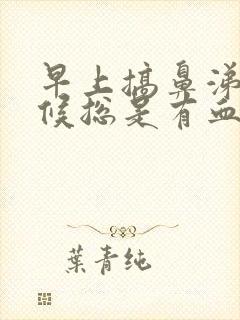 早上搞鼻涕
候总是有血
葉青纯